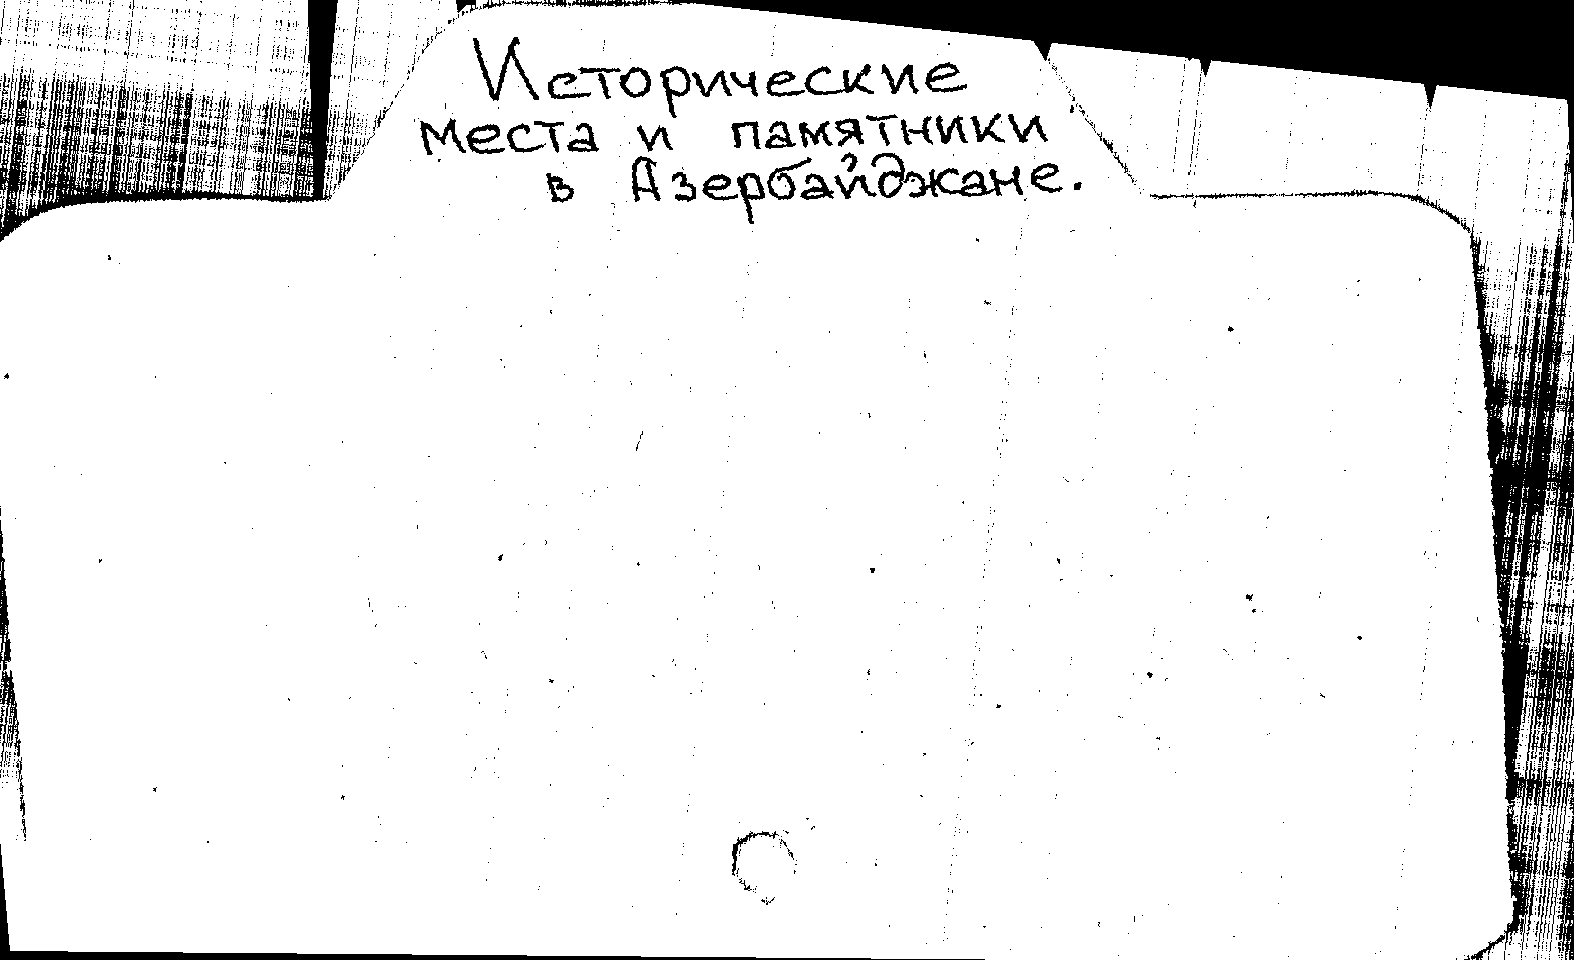 Исторические
места и памятники
в Азербайджане.